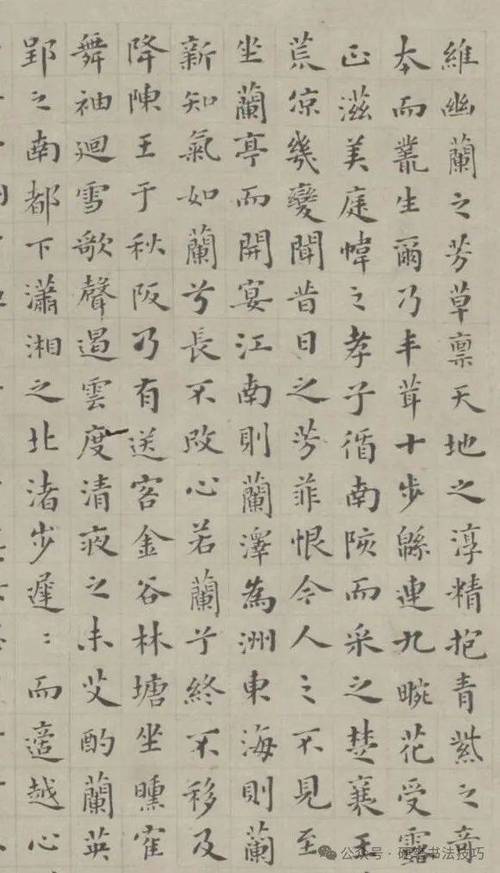 維幽蘭之芳草稟天地之淳精抱青紫之奇
本而叢生爾乃丰茸十步緜連九畹花受露
正滋美庭幃之孝子循南陔而采之楚襄王
荒涼幾變聞昔日之芳菲恨今人之不見至
坐蘭亭而開宴江南則蘭澤為洲東海則蘭
新知氣如蘭兮長不改心若蘭兮終不移及
降陳王于秋阪乃有送客金谷林塘坐曛隺
舞袖迴雪歌聲遏雲度清夜之未艾酌蘭英
郢之南都下瀟湘之北渚步遲〻而適越心
公众号·硬笔书法技巧